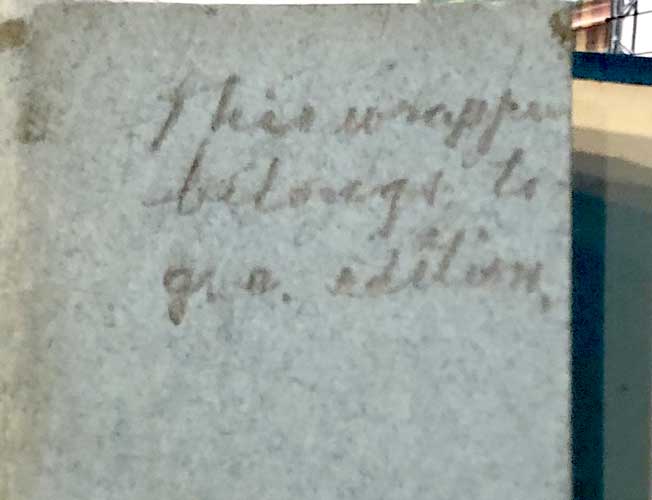 This wrapper
belongs to
g. a. edition.